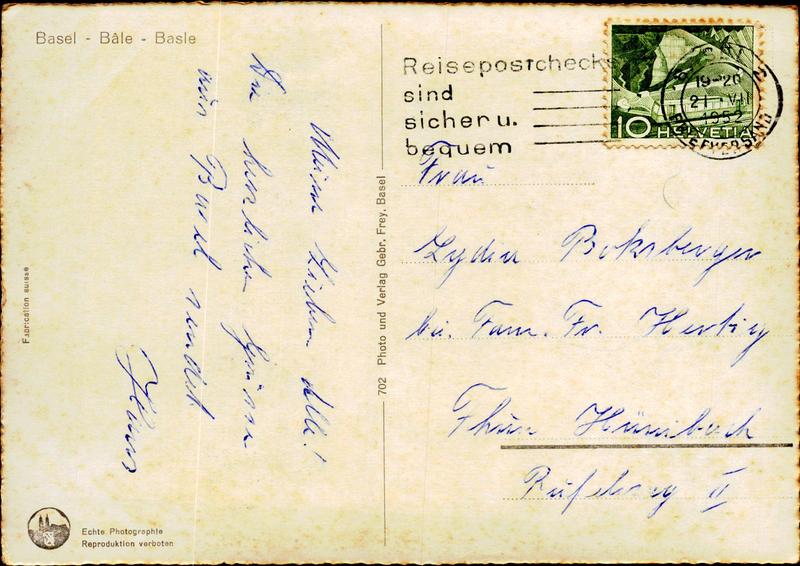 Basel - Bâle - Basle
Meine Lieben Alle!
Die herzlichen Grüsse
aus Basel sendet
Reisepostchecks
sind
sicher u.
bequem
10 HELVETIA
19-20
21. VII
1952
BRIEFVERSAND
Frau
Lydia Boksberger
bei. Fam. Fr. Hertig
Thun Hünibach
II
702 Photo und Verlag Gebr. Frey, Basel
Fabrication suisse
Echte Photographie
Reproduktion verboten